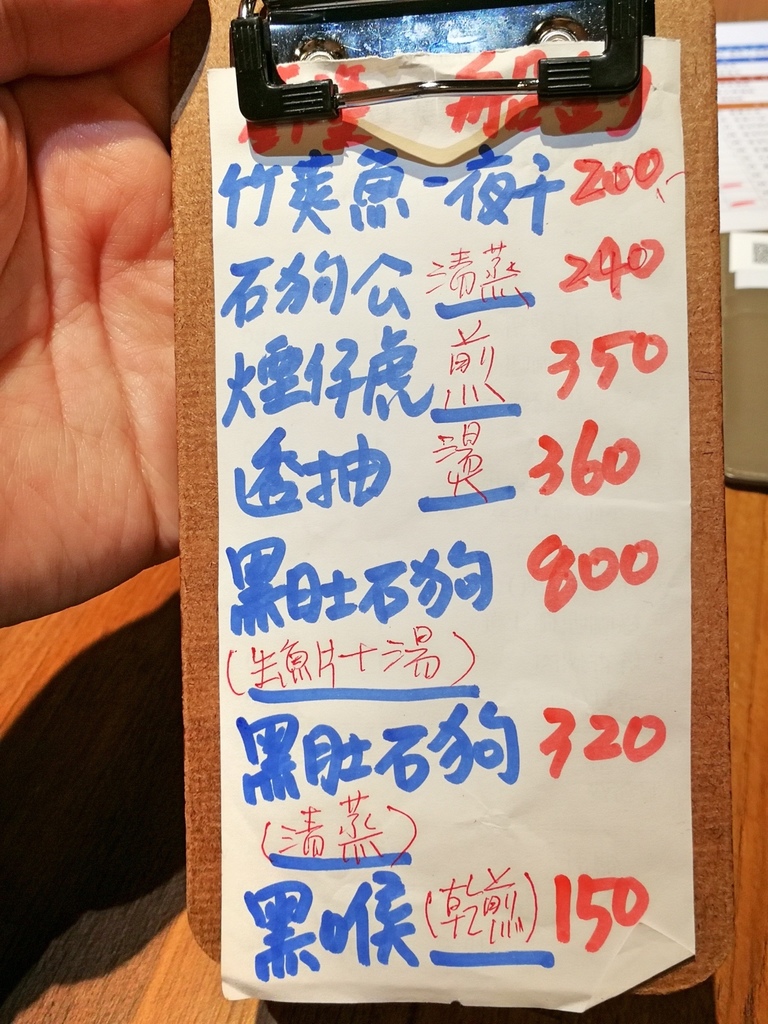 船釣
竹莢魚一夜干 200
石狗公 清蒸 240
煙仔虎 煎 350
透抽 燙 360
黑肚石狗 800
(生魚片+湯)
黑肚石狗 320
(清蒸)
黑喉 (乾煎) 150